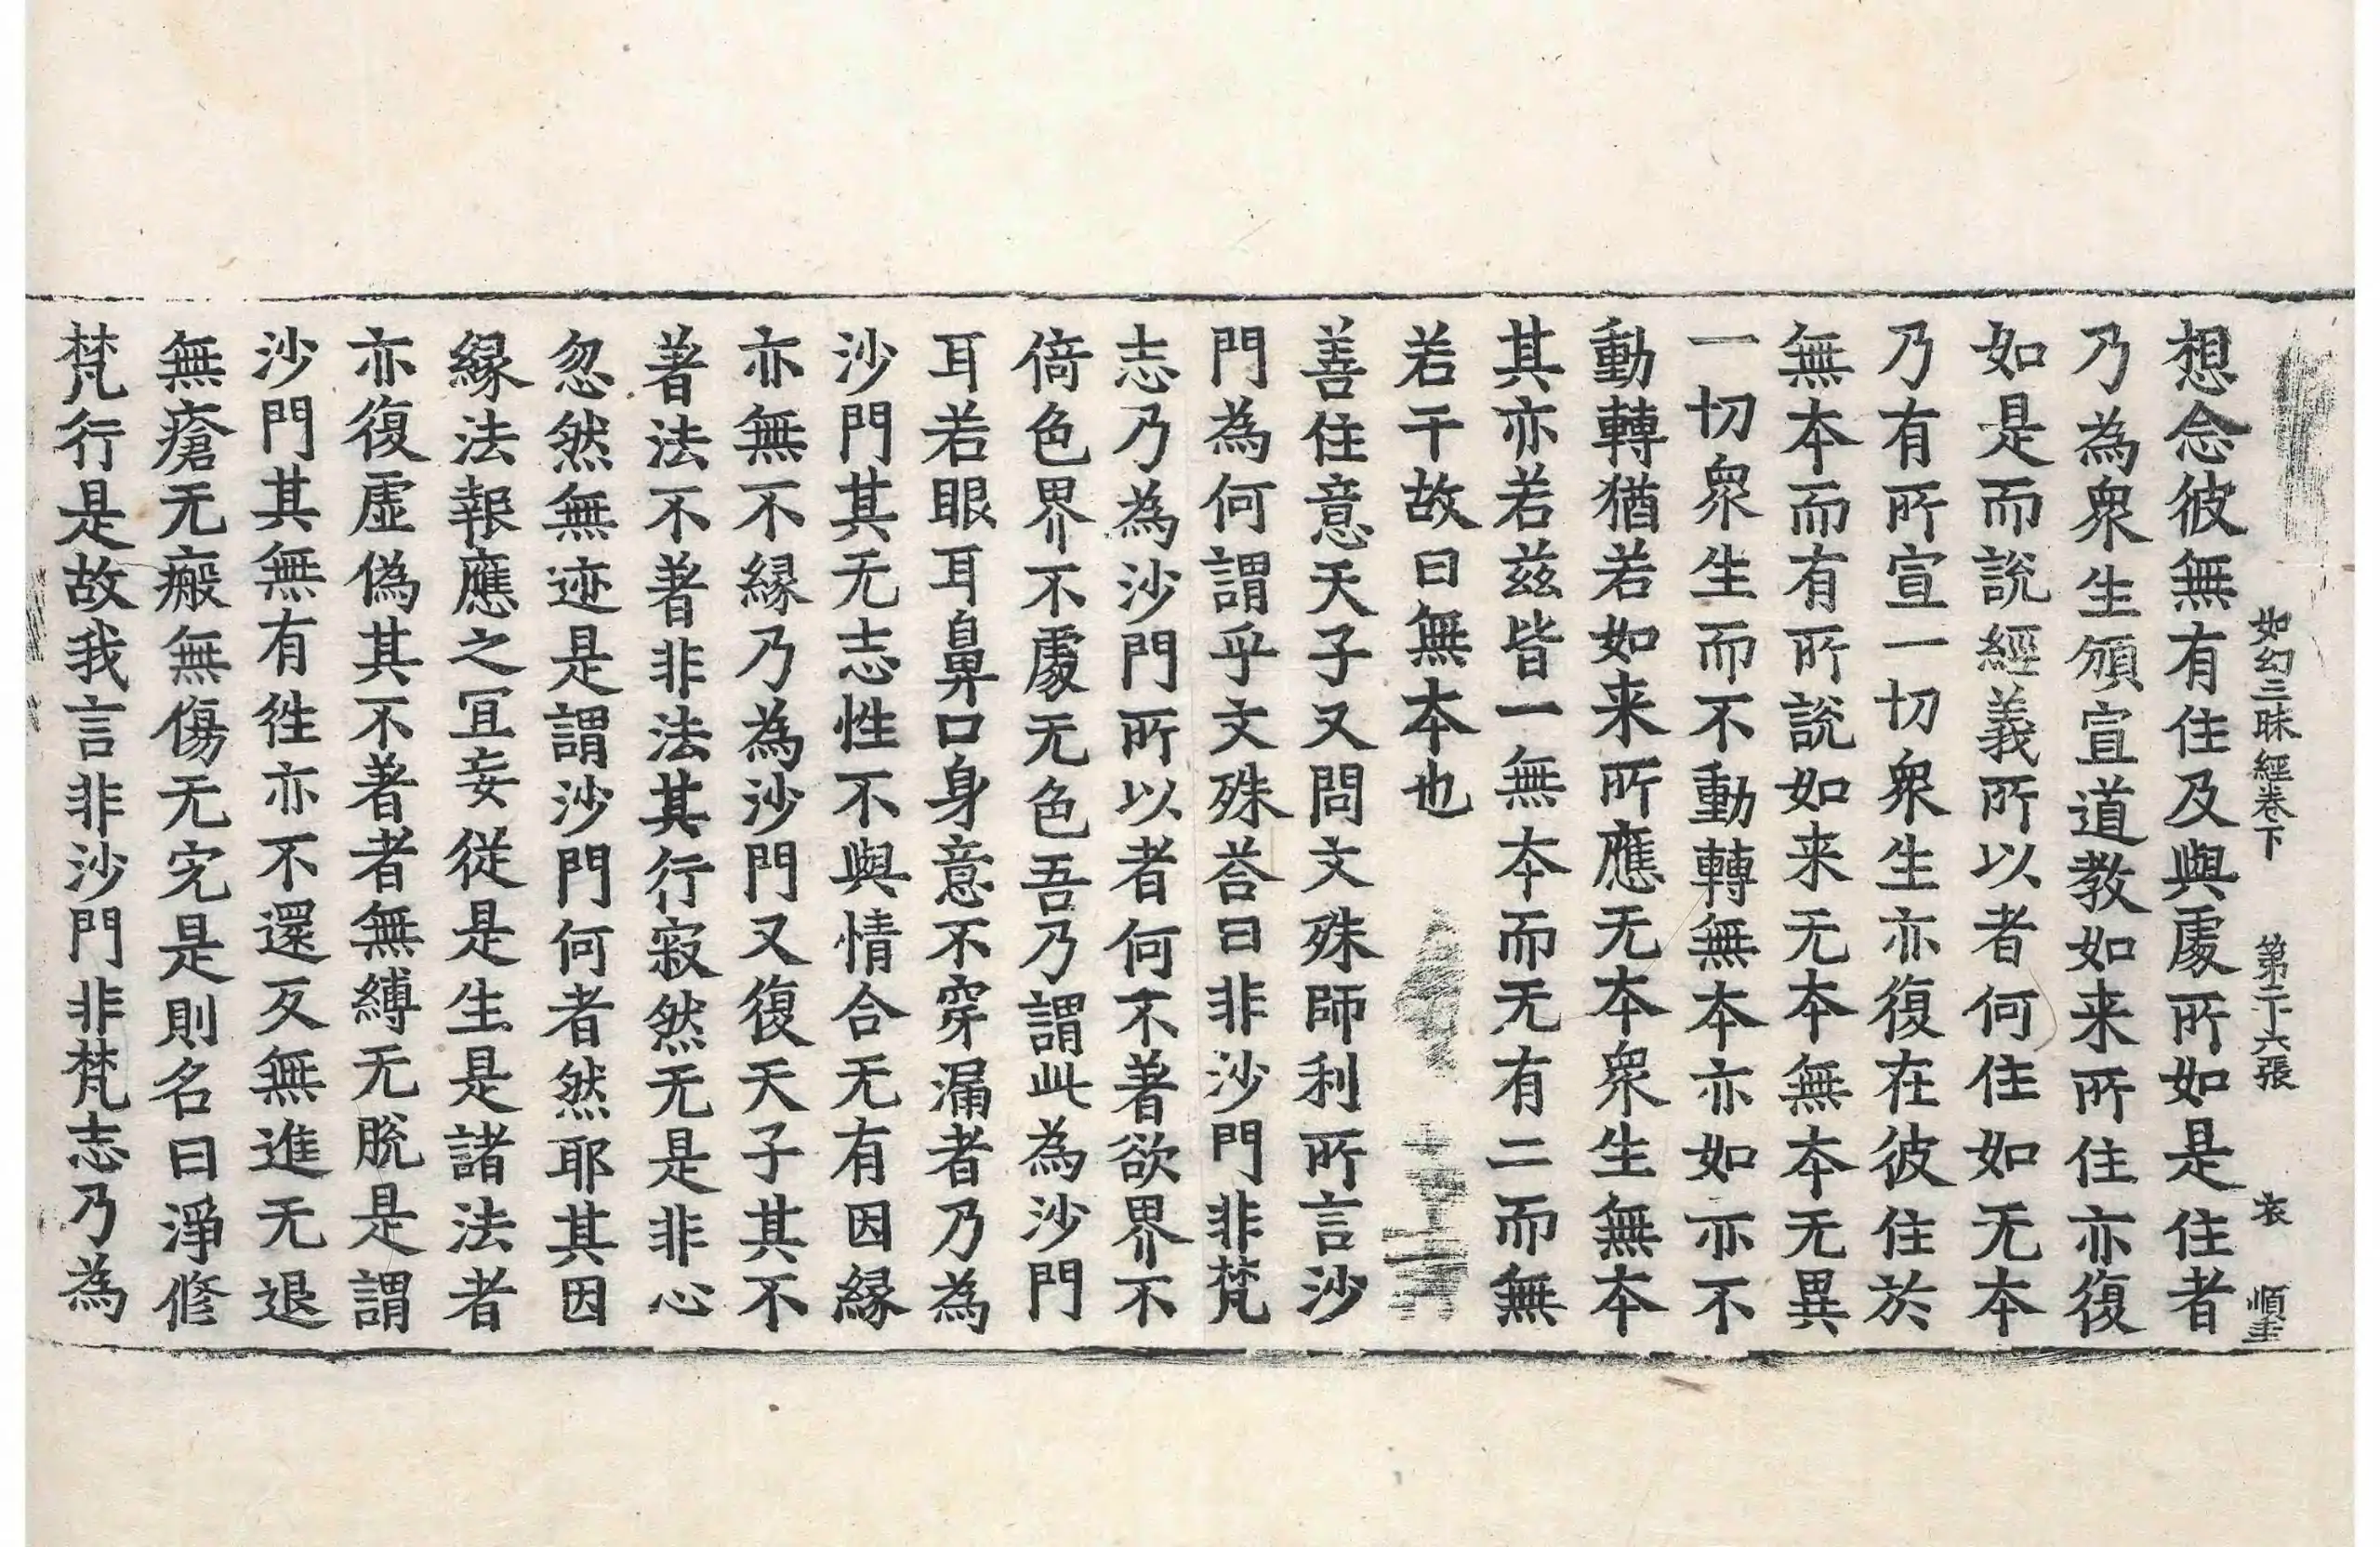 如幻三昧經卷下 第二十六張 衣 順圭
想念彼無有住及與處所如是住者
乃為衆生頒宣道教如来所住亦復
如是而說經義所以者何住如无本
乃有所宣一切衆生亦復在彼住於
無本而有所說如来无本無本无異
一切衆生而不動轉無本亦如亦不
動轉猶若如来所應无本衆生無本
其亦若茲皆一無本而无有二而無
若干故曰無本也
善住意天子又問文殊師利所言沙
門為何謂乎文殊荅曰非沙門非梵
志乃為沙門所以者何不著欲界不
倚色界不處无色吾乃謂此為沙門
耳若眼耳鼻口身意不穿漏者乃為
沙門其无志性不與情合无有因緣
亦無不緣乃為沙門又復天子其不
著法不著非法其行寂然无是非心
忽然無迹是謂沙門何者然耶其因
緣法報應之冝妄従是生是諸法者
亦復虛偽其不著者無縛无脫是謂
沙門其無有徃亦不還反無進无退
無瘡无瘢無傷无完是則名曰淨修
梵行是故我言非沙門非梵志乃為